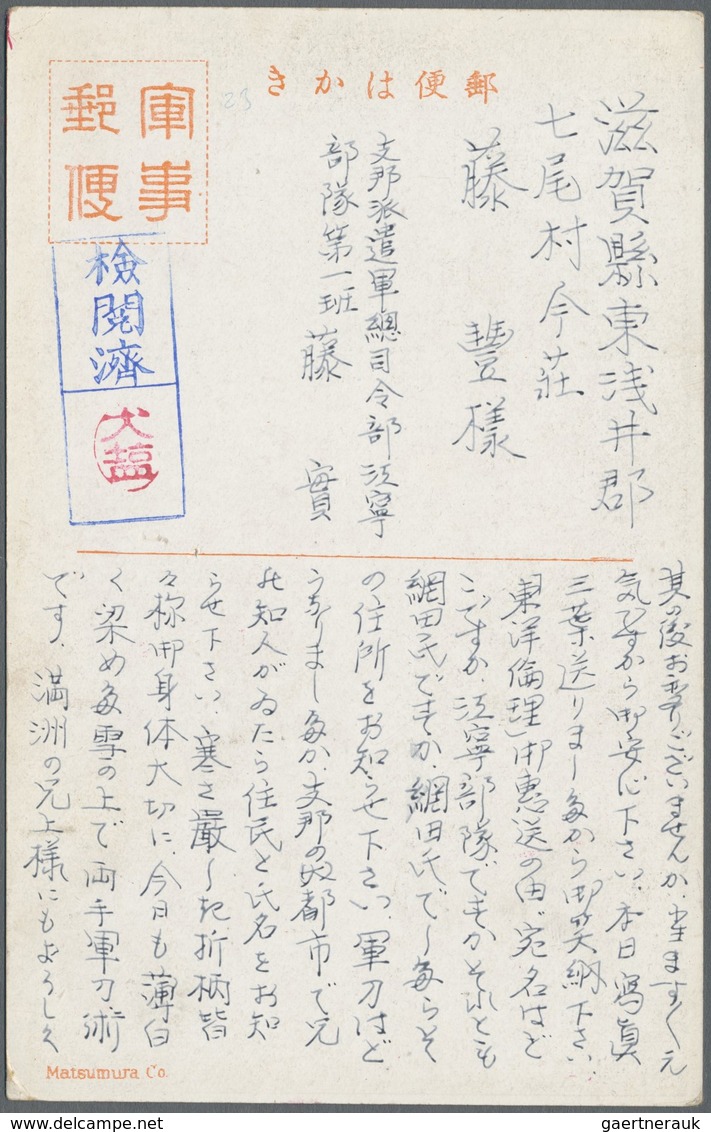 郵便はかき
軍事
郵便
検閲済
犬
23
滋賀縣東浅井郡
七尾村今荘
藤 豐様
支那派遣軍總司令部江寧
部隊第一班 藤 實
其の後お変りございませんか、小生ますく元
気ですから御安心下さい、本日寫眞
三葉送りました故から御笑納下さい、
「東洋倫理」御惠送の由、宛名はど
こですか、江寧部隊ですかそれとも
網田氏ですか、網田氏でしたらそ
の住所をお知らせ下さい、軍刀はど
うなりましたか、支那の都市で兄
の知人がゐたら住民と氏名をお知
らせ下さい、寒さ嚴しき折柄皆
々様御身体大切に、今日も薄白
く染めた雪の上で両手軍刀術
です、満洲の兄上様にもよろしく
Matsumura Co.
gaertnerauk